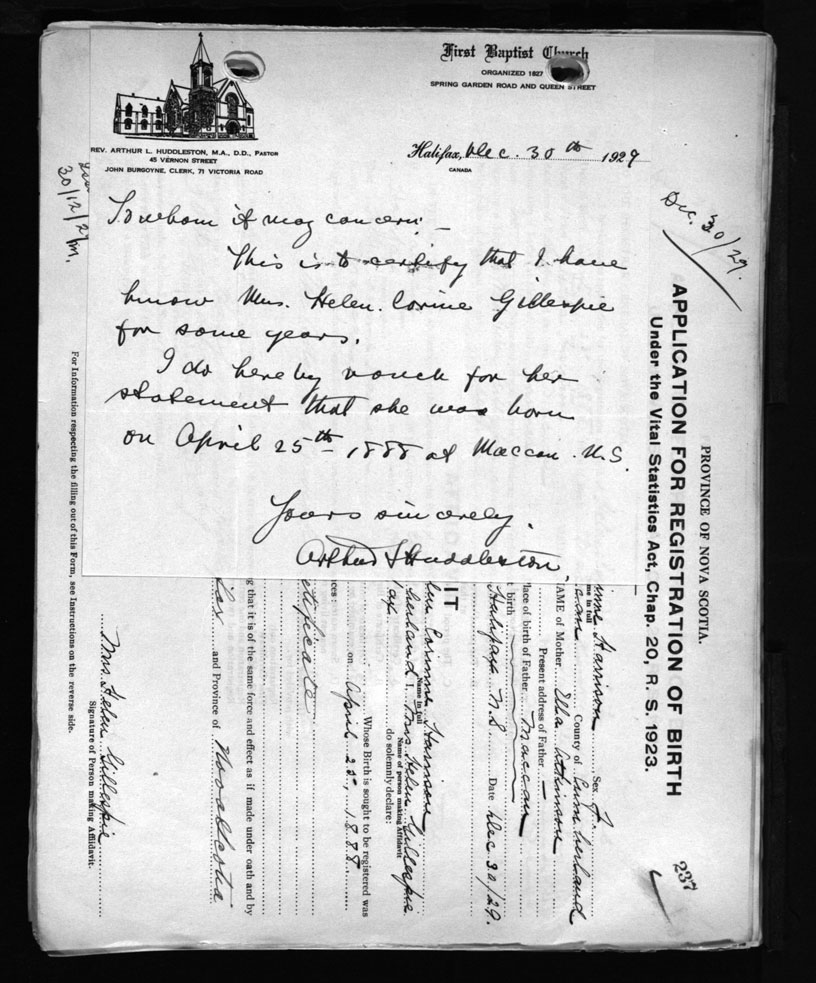 First Baptist Church
ORGANIZED 1827
SPRING GARDEN ROAD AND QUEEN STREET
REV. ARTHUR L. HUDDLESTON, M.A., D.D., PASTOR
45 VERNON STREET
JOHN BURGOYNE, CLERK, 71 VICTORIA ROAD
Halifax, Dec. 30th 1929
CANADA
To whom it may concern:—
This is to certify that I have
know Mrs. Helen. Corine Gillespie
for some years.
I do hereby vouch for her
statement that she was born
on April 25th – 1888 at Maccan N.S.
Yours sincerely,
Arthur L Huddleston.
30/12/29
Dec. 30/29.
237
PROVINCE OF NOVA SCOTIA.
APPLICATION FOR REGISTRATION OF BIRTH
Under the Vital Statistics Act, Chap. 20, R. S. 1923.
Harrison Sex F.
County of Cumberland
NAME of Mother Ella Atkinson
Present address of Father —
lace of birth of Father Maccan
birth
Halifax N.S. Date Dec 30/29.
IT
Corinne Harrison
Name in full
I, Mrs Helen Gillespie
Name of person making Affidavit
do solemnly declare:
Whose Birth is sought to be registered was
on April 25, 1888
ces:
tificate
g that it is of the same force and effect as if made under oath and by
and Province of Nova Scotia
Mrs. Helen Gillespie
Signature of Person making Affidavit.
For Information respecting the filling out of this Form, see Instructions on the reverse side.